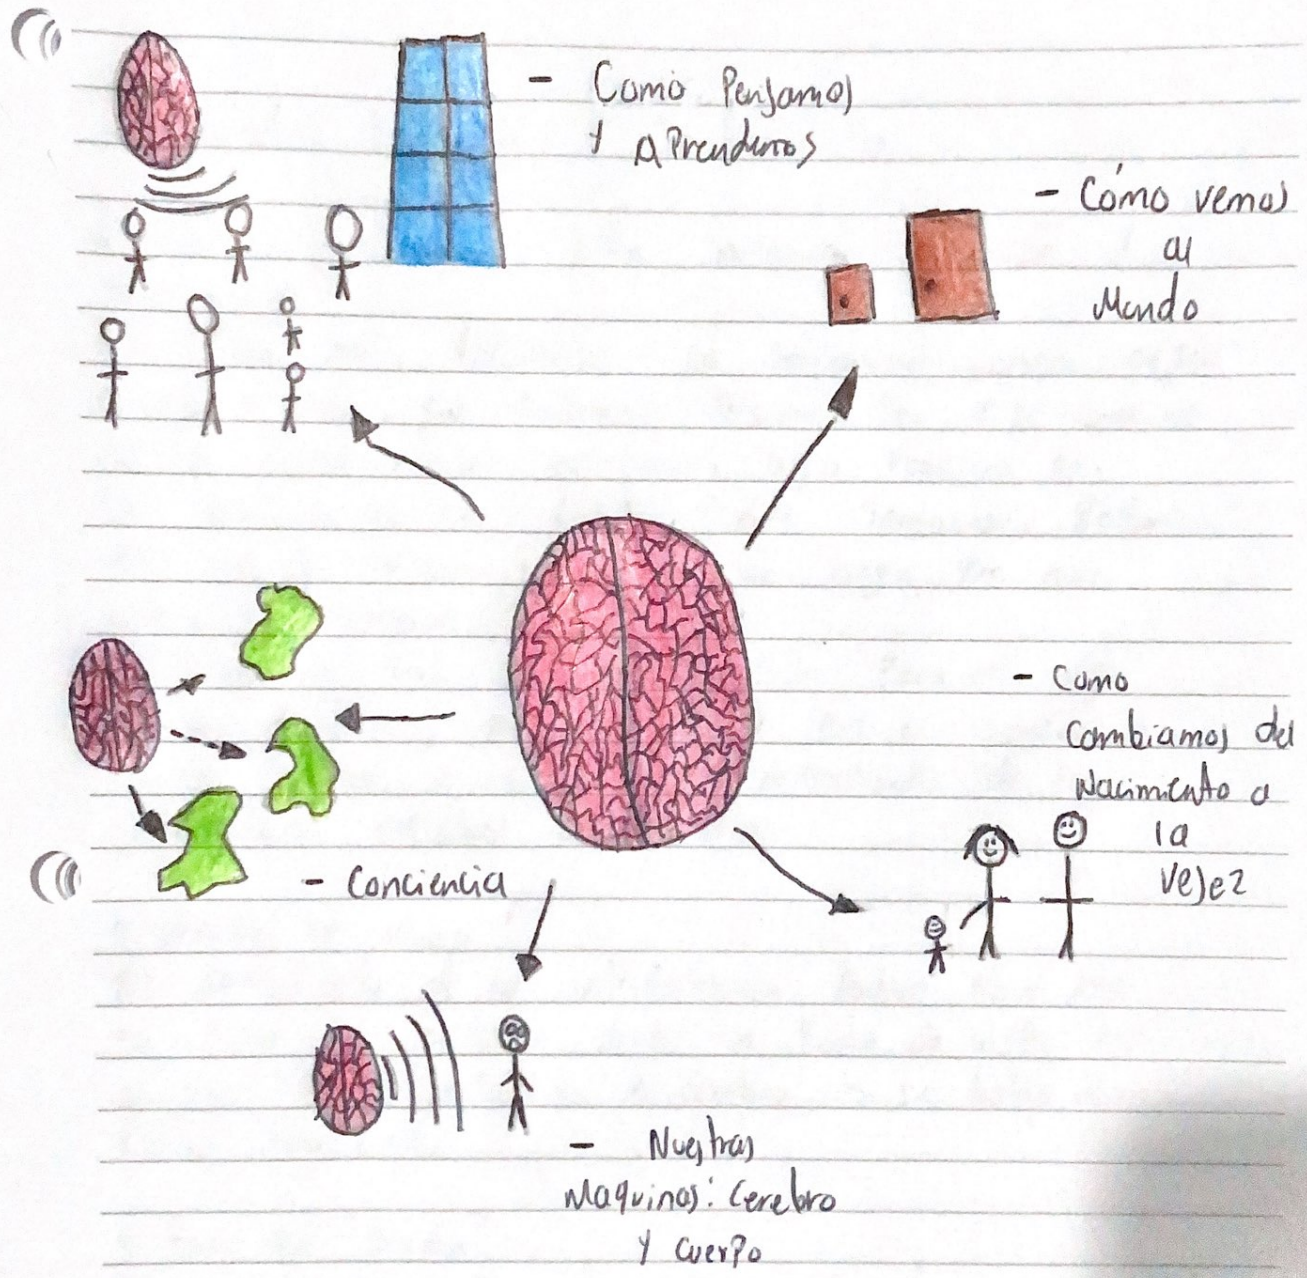 - Como Pensamos
y aprendemos
- Cómo vemos
al
Mundo
- Como
Cambiamos del
Nacimiento a
la
vejez
- Conciencia
- Nuestras
Maquinas: Cerebro
y cuerpo